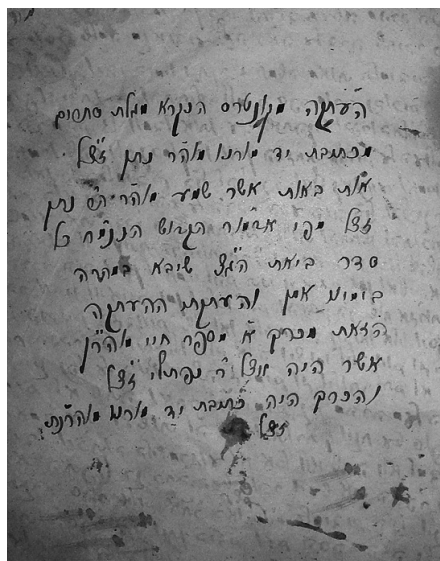 העתקה מקונטרס הנקרא מגלת סתרים
מכתיבת יד מורנו מוהר נתן זצ״ל
אות באות אשר שמע מוהר״ר נתן
זצל מפי אדמור הקדוש הננמח כל
סדר ביאת הגצ שיבא במהרה
בימינו אמן והעתקת ההעתקה
הזאת מכרך א׳ מספר חיי מוהרן
אשר היה אצל ר׳ נפתלי זצ״ל
והכרך היה כתיבת יד מורנו מוהרנת
זצל